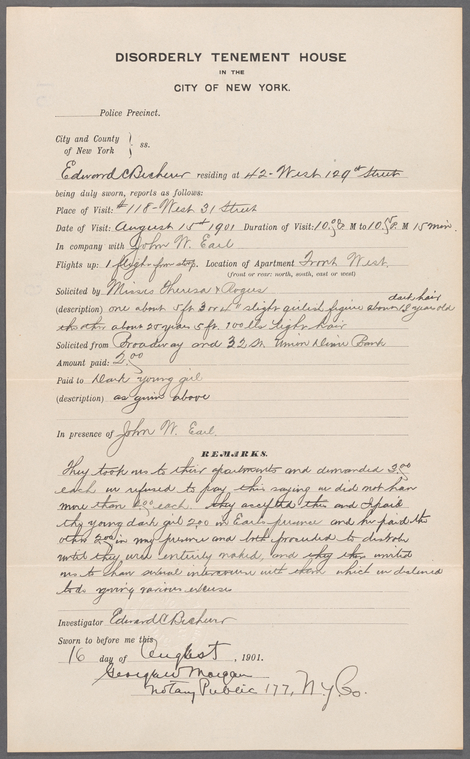 DISORDERLY TENEMENT HOUSE
IN THE
CITY OF NEW YORK.
Police Precinct.
City and County
of New York } ss.
Edward C Becherer residing at 42-West 129th Street
being duly sworn, reports as follows:
Place of Visit: #118-West 31 Street
Date of Visit: August 15th 1901 Duration of Visit: 10 M to 10 M 15 min.
In company with John W. Earl
Flights up: 1 flight from stoop. Location of Apartment Front West.
(front or rear: north, south, east or west)
Solicited by Misses Theresa & Roges
dark hair
(description) one about 5 ft 3 or 4" slight girlish figure about 18 year old
the other about 20 years 5 ft. 100 lbs light hair
Solicited from Broadway and 32 St. Union Dime Bank
Amount paid: 2.00
Paid to Dark young girl
(description) as given above
In presence of John W. Earl.
REMARKS.
They took us to their apartments and demanded 3.00
each we refused to pay this saying we did not have
more than 2.00 each. they accepted this and I paid
the young dark girl 2.00 in Earls presence and he paid the
other 2.00 in my presence and both proceeded to disrobe
until they were entirely naked, and they then invited
us to have sexual intercourse with them which we declined
to do giving various excuses
Investigator Edward C Becherer
Sworn to before me this
16 day of August, 1901.
George W Morgan
Notary Public 177, N.Y. Co.